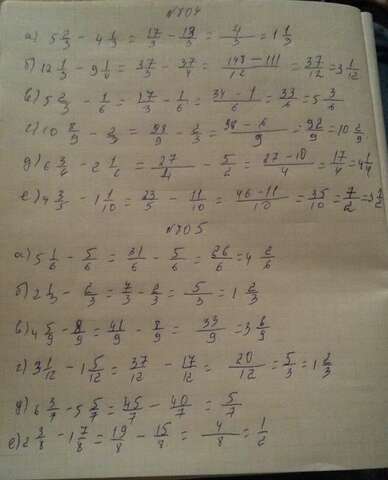 №804
а) 5 2/3 - 4 1/3 = 17/3 - 13/3 = 4/3 = 1 1/3
б) 12 1/3 - 9 1/4 = 37/3 - 37/4 = 148-111/12 = 37/12 = 3 1/12
в) 5 2/3 - 1/6 = 17/3 - 1/6 = 34-1/6 = 33/6 = 5 3/6
г) 10 8/9 - 2/3 = 98/9 - 2/3 = 98-6/9 = 92/9 = 10 2/9
д) 6 3/4 - 2 1/6 = 27/4 - 5/2 = 27-10/4 = 17/4 = 4 1/4
е) 4 3/5 - 1 1/10 = 23/5 - 11/10 = 46-11/10 = 35/10 = 7/2 = 3 1/2
№805
а) 5 1/6 - 5/6 = 31/6 - 5/6 = 26/6 = 4 2/6
б) 2 1/3 - 2/3 = 7/3 - 2/3 = 5/3 = 1 2/3
в) 4 5/9 - 8/9 = 41/9 - 8/9 = 33/9 = 3 6/9
г) 3 1/12 - 1 5/12 = 37/12 - 17/12 = 20/12 = 5/3 = 1 2/3
д) 6 3/7 - 5 5/7 = 45/7 - 40/7 = 5/7
е) 2 3/8 - 1 7/8 = 19/8 - 15/8 = 4/8 = 1/2